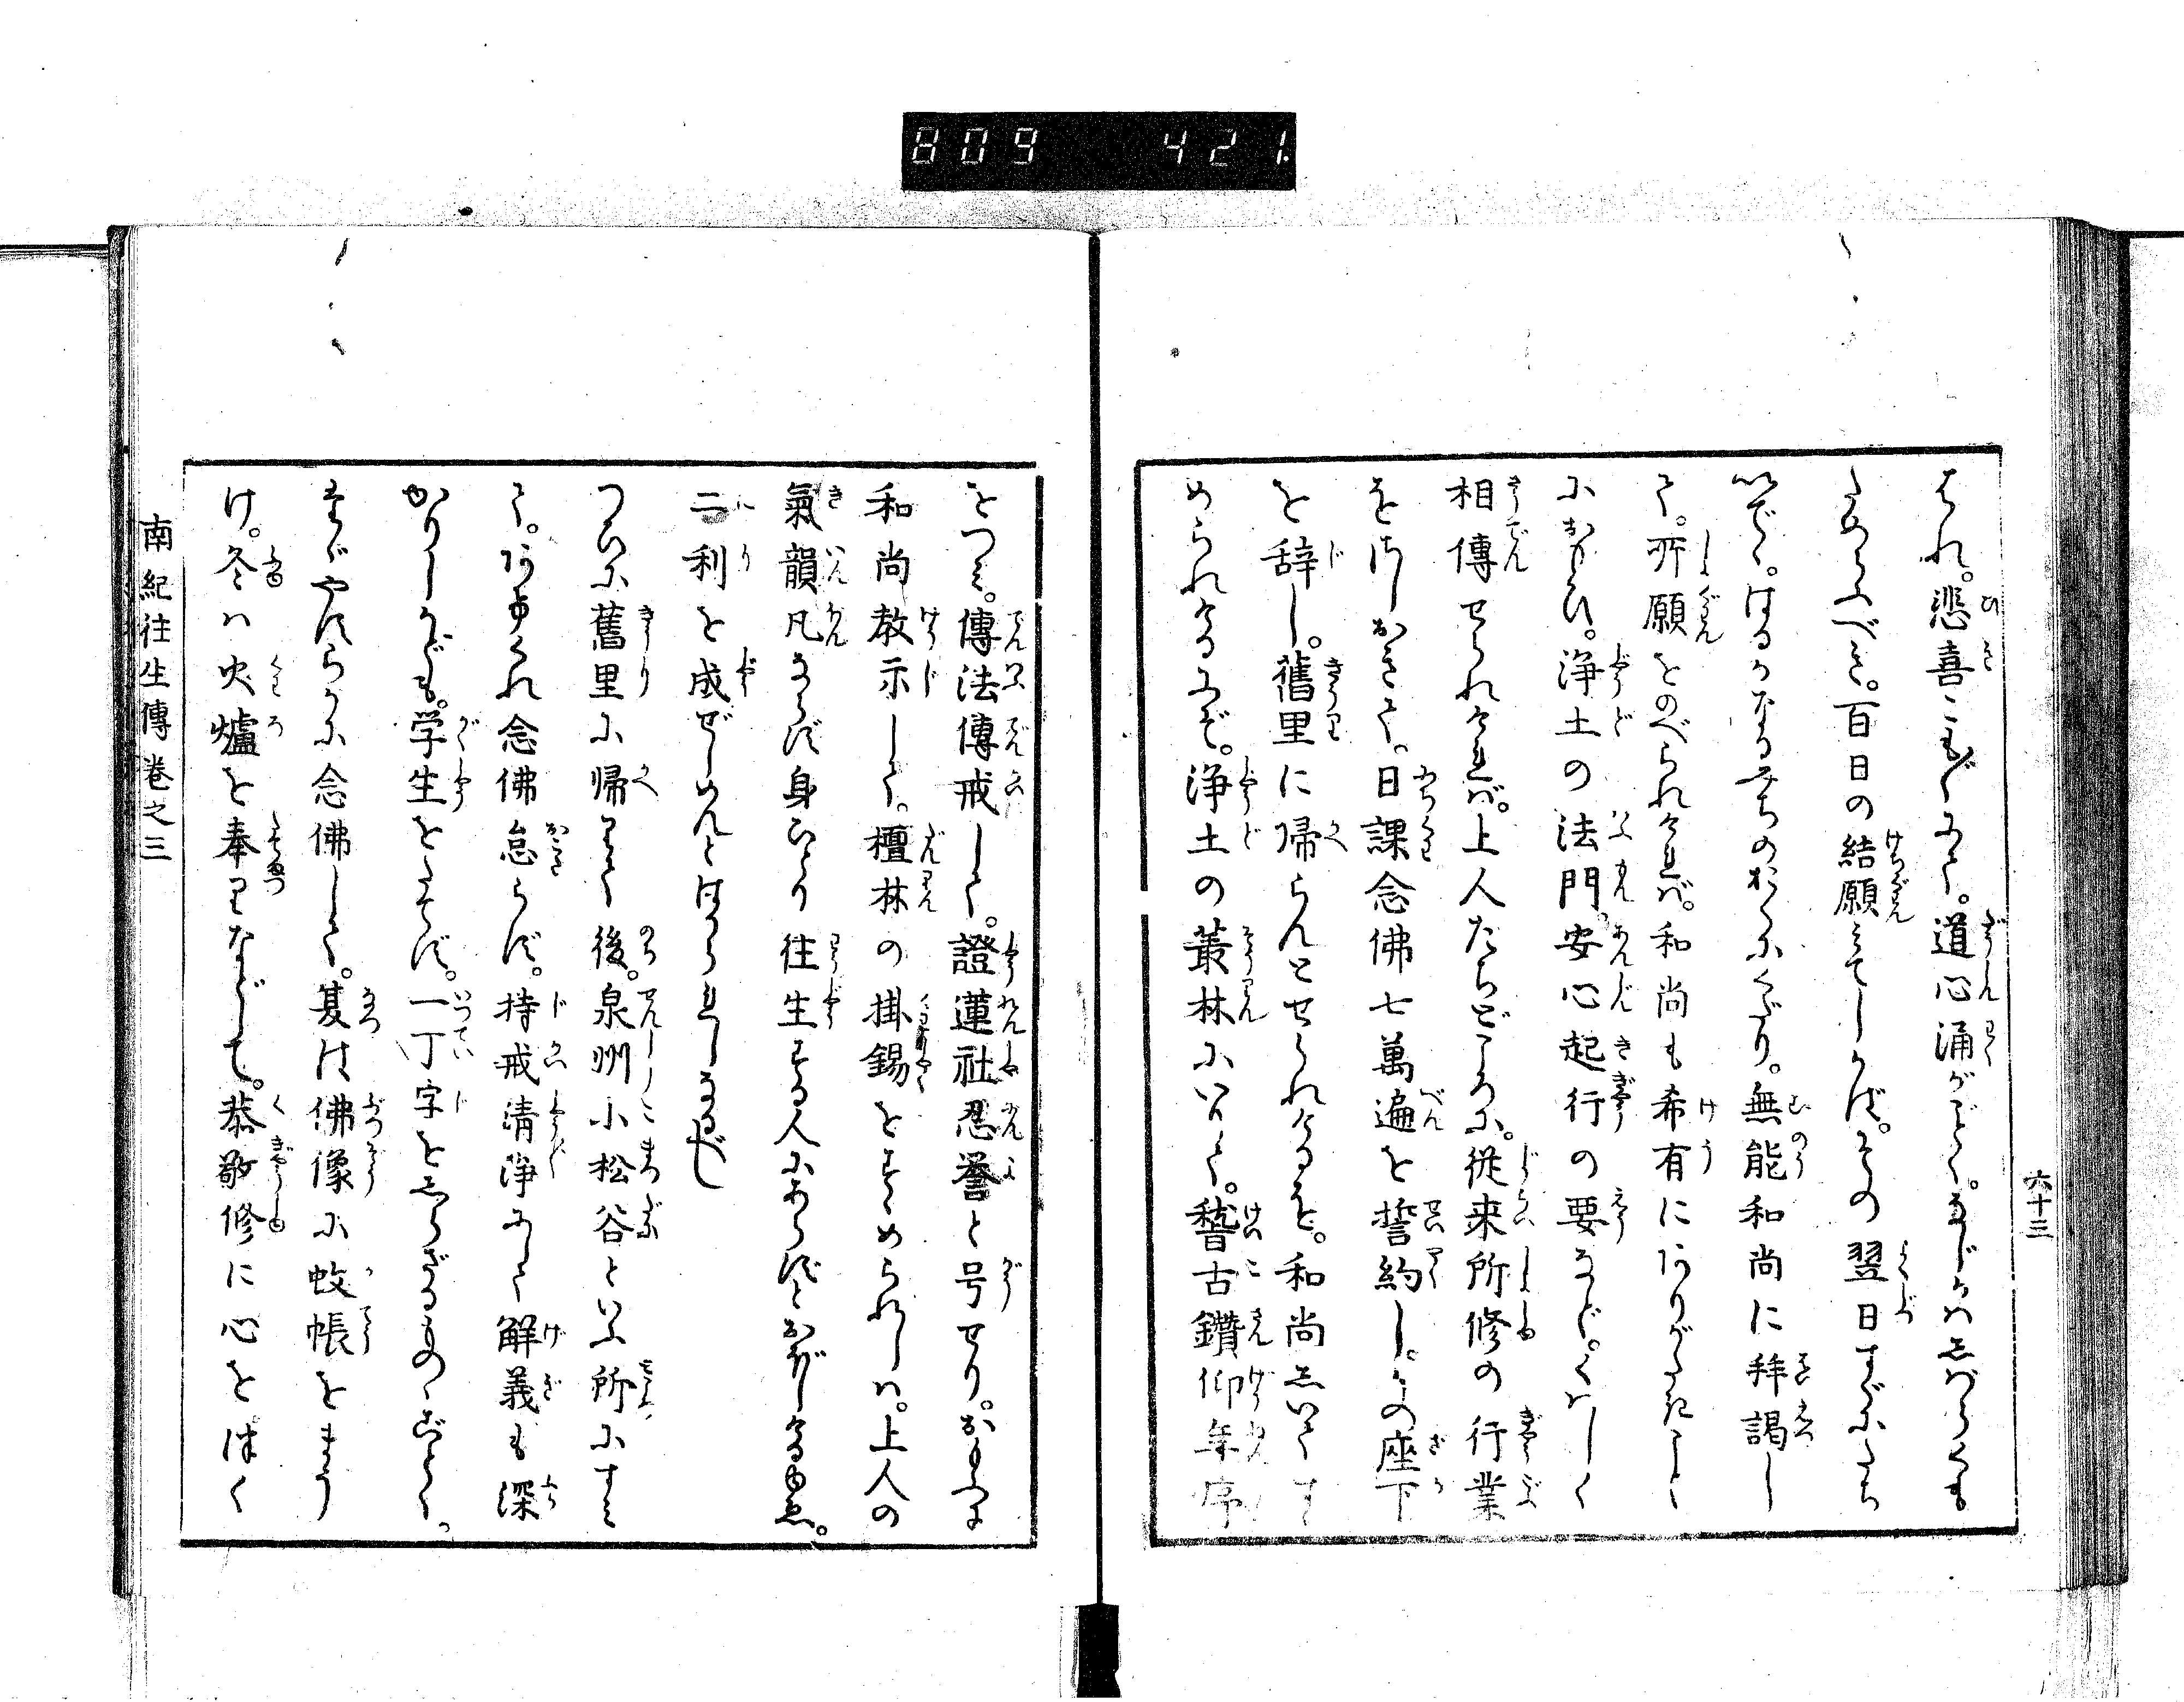 809 421.
六十三
それ。悲喜こも〴〵にて。道心涌がごとく。なみだはしばらくも
ためらふべき。百日の結願みてしかば。その翌日すぐにたち
いでゝ。はるかなるみちのおくにくだり。無能和尚に拜謁し
て。所願をのべられければ。和尚も希有にありがたきこと
におもひ。淨土の法門。安心起行の要など。くはしく
相傳せられければ。上人たちどころに。從来所修の行業
をさしおきて。日課念佛七萬遍を誓約し。その座下
を辞し。舊里に帰らんとせられけるを。和尚しいてすゝ
められけるにぞ。淨土の叢林にいりて。稽古鑚仰年序
をつみ。傳法傳戒して。證蓮社忍誉と号せり。おもふに
和尚教示して。檀林の掛錫をすゝめられしハ。上人の
氣韻凡ならず身ひとり往生する人にあらずとおぼしけるゆゑ。
二利を成ぜしめんとはかられしなるべし
つひに舊里に帰りて後。泉州小松谷といふ所にすみ
て。あまくれ念佛怠らず。持戒清淨にして解義も深
かりしかども。学生をたてず。一丁字をしらざるものゝごとく。
たゞやすらかに念佛して。夏は佛像に蚊帳をまう
け。冬ハ火爐を奉りなどして。恭敬修に心をはく
南紀往生傳卷之三